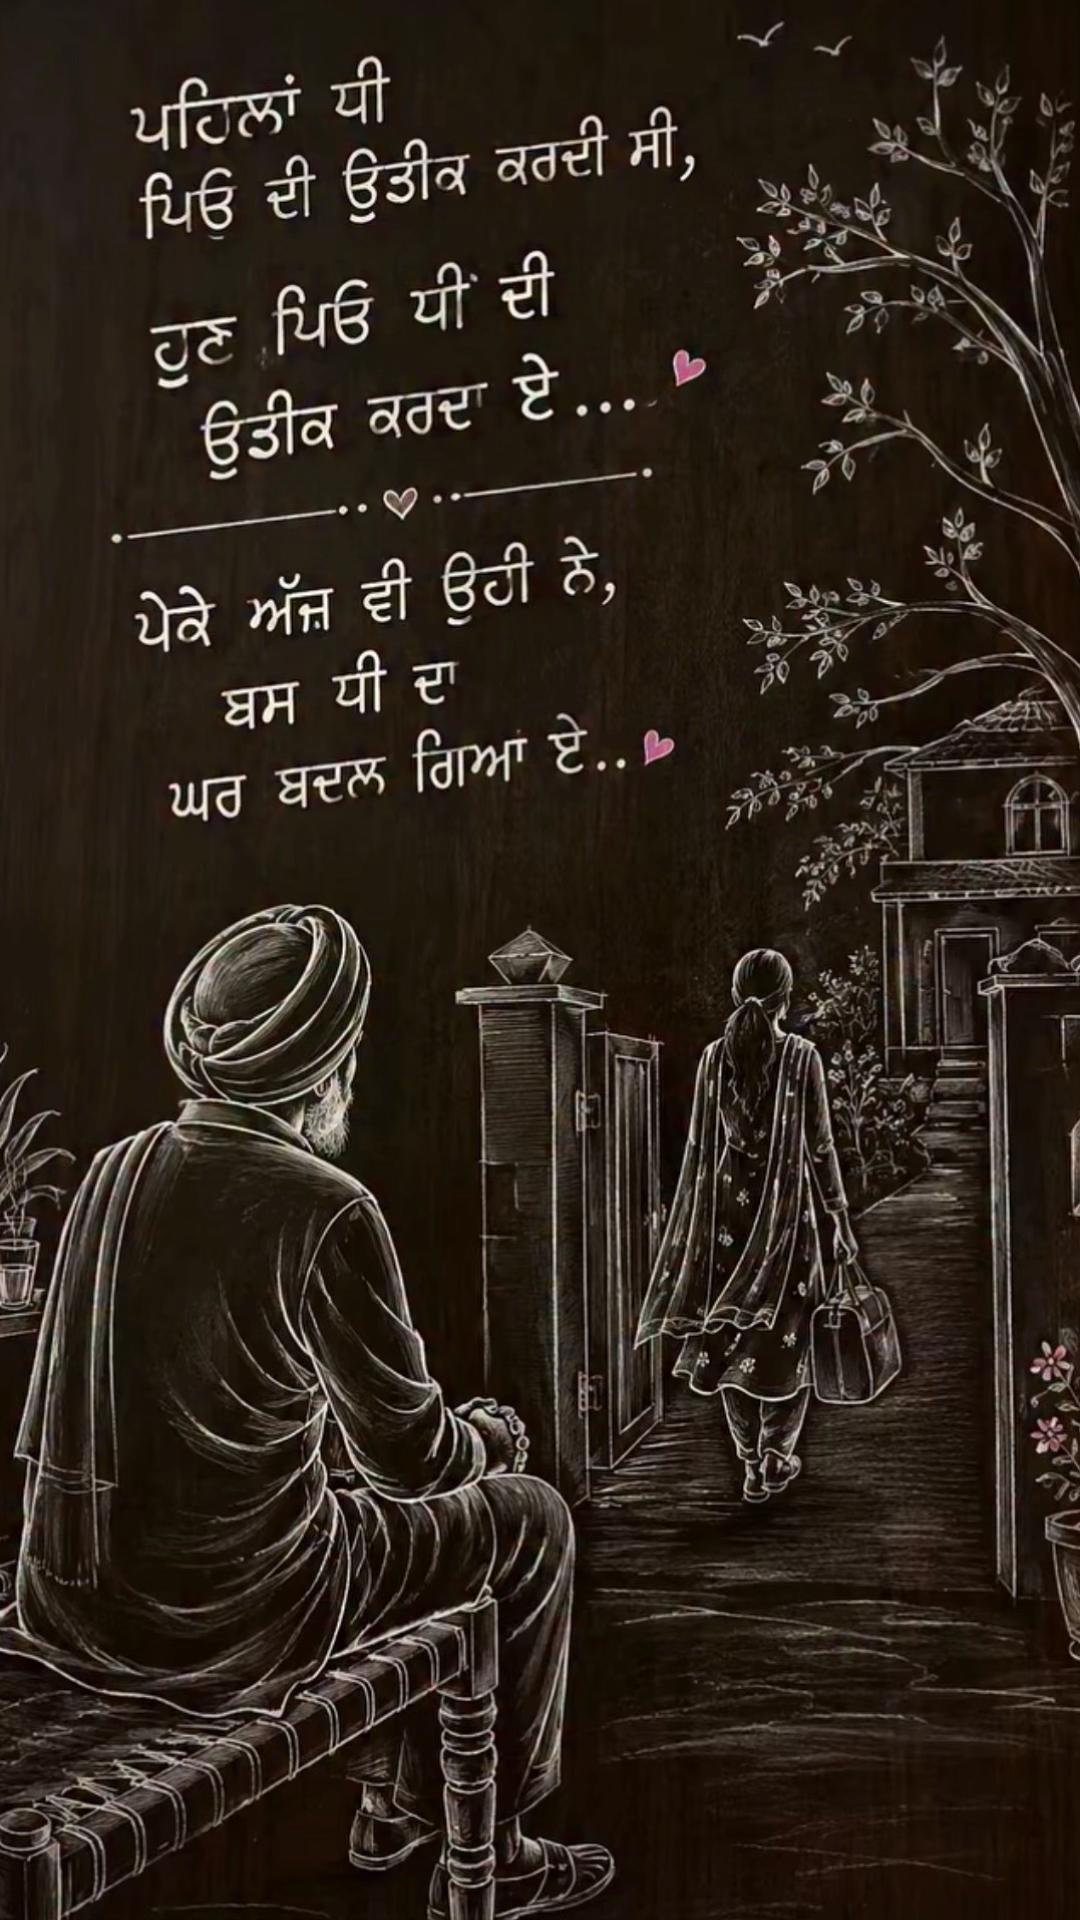 ਪਹਿਲਾਂ ਧੀ
ਪਿਓ ਦੀ ਉਡੀਕ ਕਰਦੀ ਸੀ,
ਹੁਣ ਪਿਓ ਧੀ ਦੀ
ਉਡੀਕ ਕਰਦਾ ਏ...
ਪੇਕੇ ਅੱਜ਼ ਵੀ ਉਹੀ ਨੇ,
ਬਸ ਧੀ ਦਾ
ਘਰ ਬਦਲ ਗਿਆ ਏ..